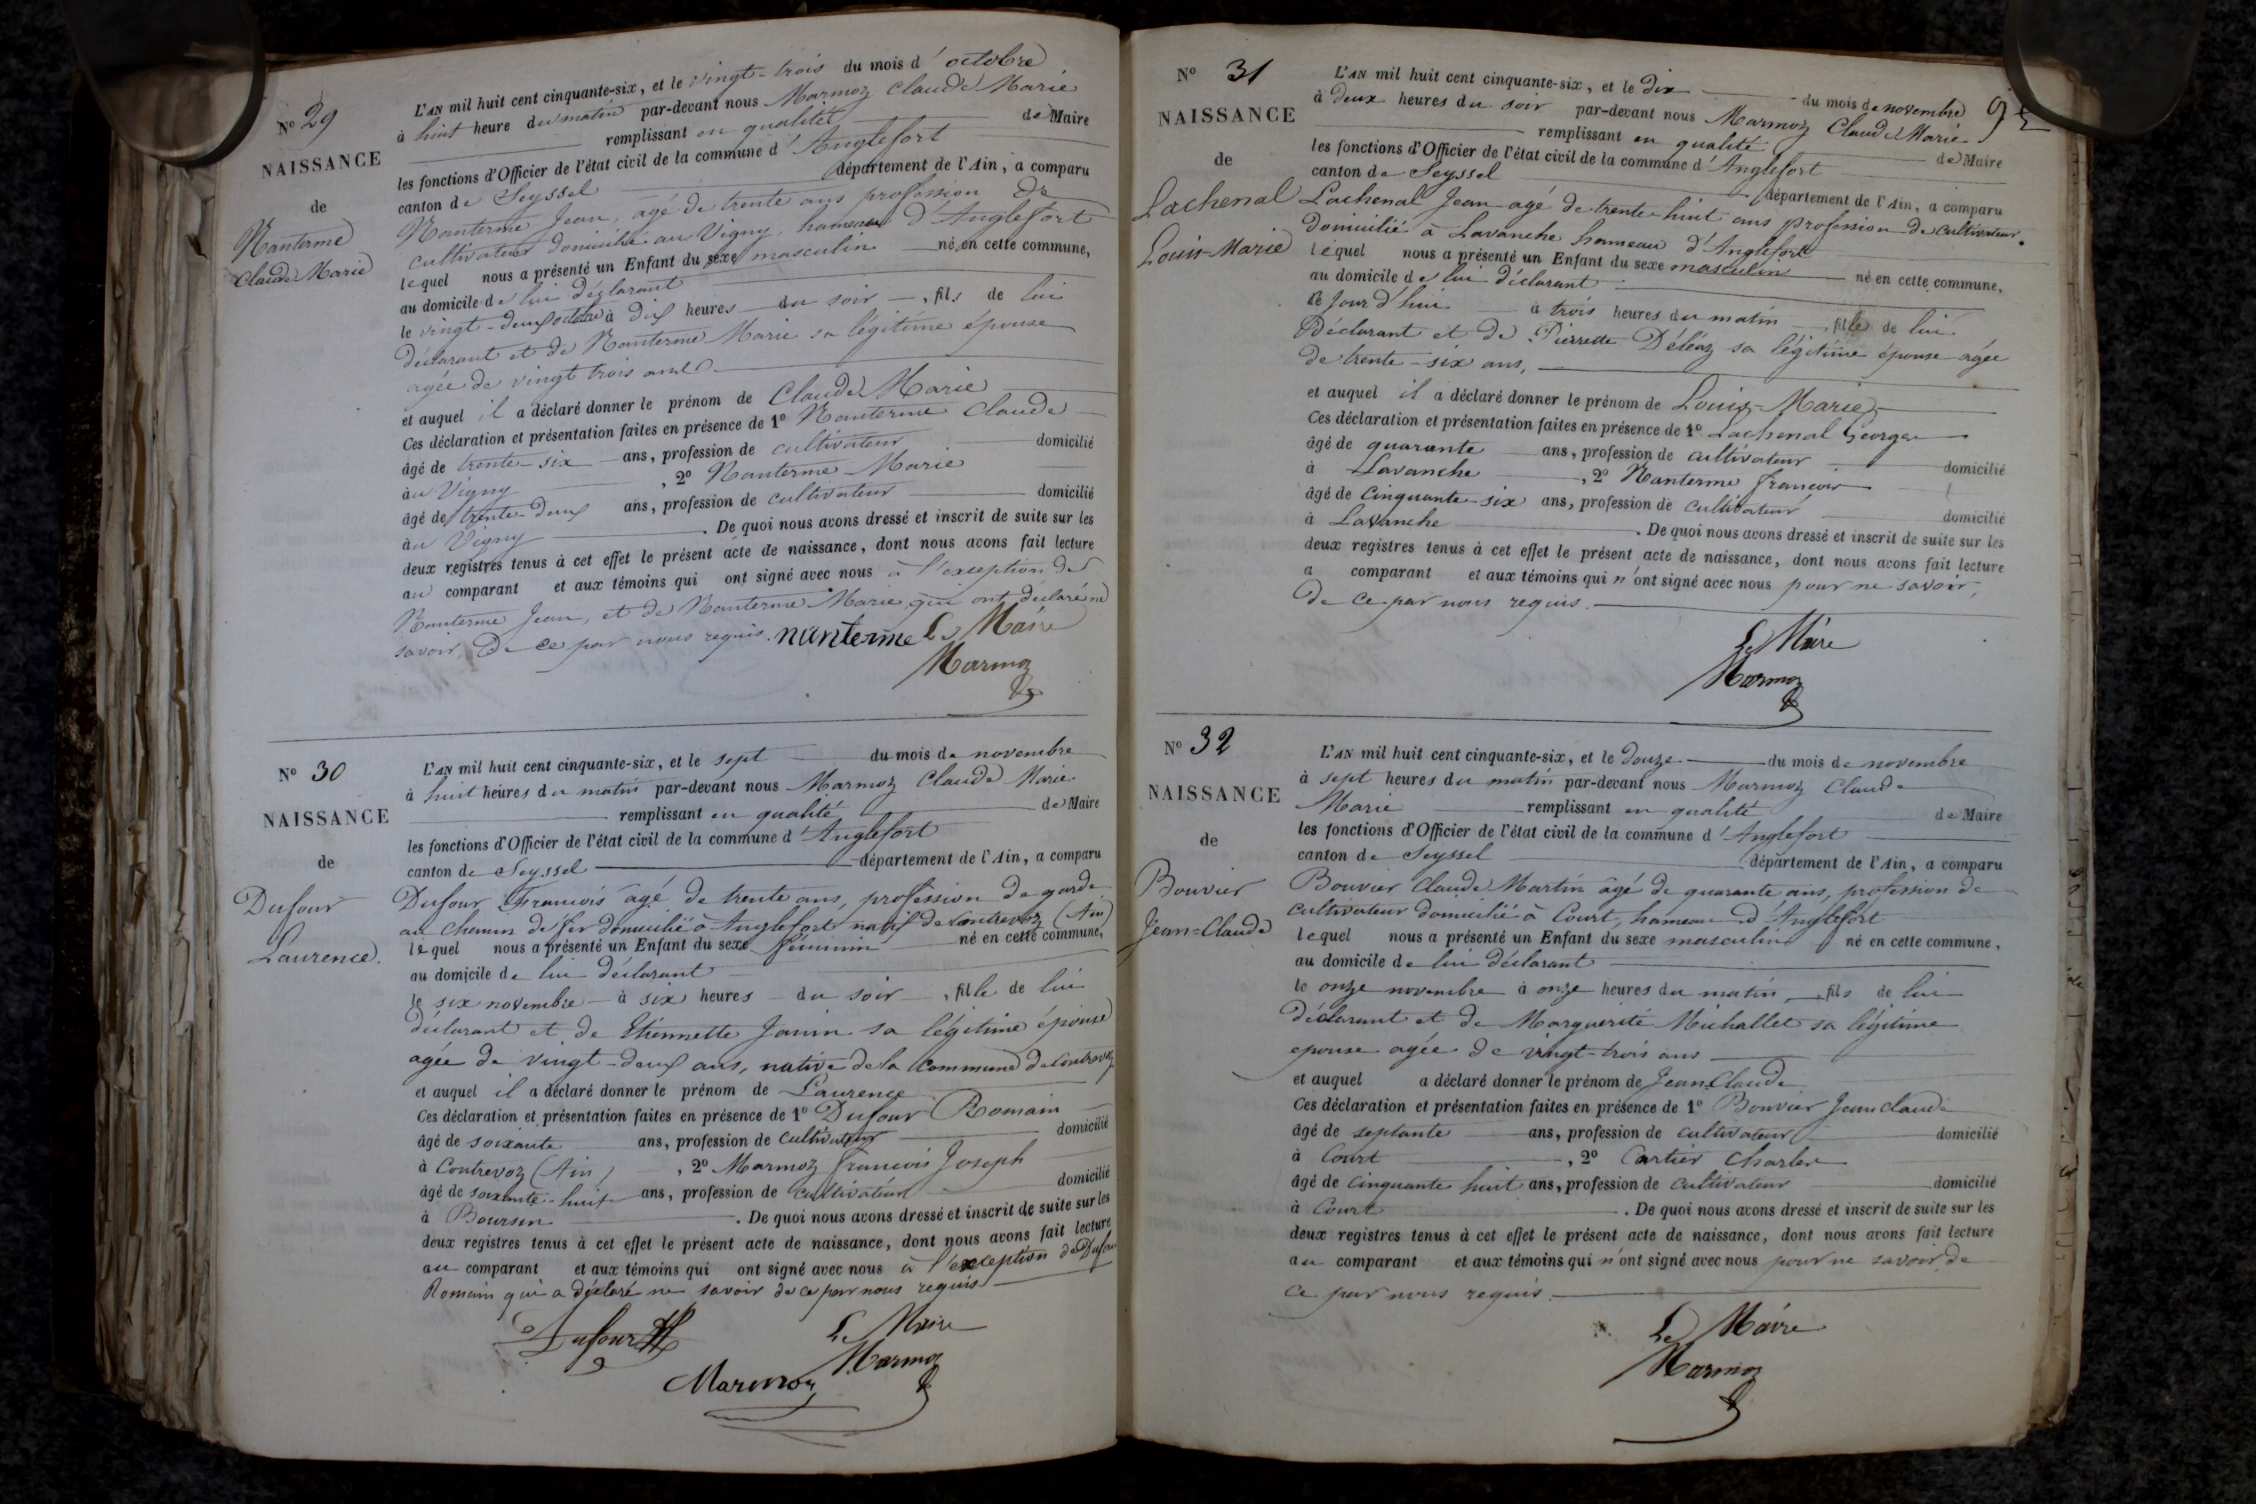 N° 29
NAISSANCE
de
Nanterme
Claude Marie
L'AN mil huit cent cinquante-six, et le vingt-trois du mois d'octobre
à huit heure du matin par-devant nous Marmoz Claude Marie
remplissant en qualité de Maire
les fonctions d'Officier de l'état civil de la commune d'Anglefort
canton de Seyssel département de l'Ain, a comparu
Nanterme Jean, agé de trente ans profession de
cultivateur domicilié au Vigny, hameau d'Anglefort
lequel nous a présenté un Enfant du sexe masculin né en cette commune,
au domicile de lui déclarant
le vingt-deux octobre à dix heures du soir, fils de lui
déclarant et de Nanterme Marie sa légitime épouse
agée de vingt trois ans
et auquel il a déclaré donner le prénom de Claude Marie
Ces déclaration et présentation faites en présence de 1° Nanterme Claude
âgé de trente-six ans, profession de cultivateur domicilié
au Vigny, 2° Nanterme Marie
âgé de trente-deux ans, profession de cultivateur domicilié
au Vigny. De quoi nous avons dressé et inscrit de suite sur les
deux registres tenus à cet effet le présent acte de naissance, dont nous avons fait lecture
au comparant et aux témoins qui ont signé avec nous à l'exception de
Nanterme Jean, et de Nanterme Marie qui ont déclaré ne
savoir, de ce par nous requis. nanterme Le Maire
Marmoz
N° 30
NAISSANCE
de
Dufour
Laurence.
L'AN mil huit cent cinquante-six, et le sept du mois de novembre
à huit heures du matin par-devant nous Marmoz Claude Marie
remplissant en qualité de Maire
les fonctions d'Officier de l'état civil de la commune d'Anglefort
canton de Seyssel département de l'Ain, a comparu
Dufour François âgé de trente ans, profession de garde
au chemin de fer domicilié à Anglefort natif de Contrevoz (Ain)
lequel nous a présenté un Enfant du sexe féminin né en cette commune,
au domicile de lui déclarant
le six novembre à six heures du soir, fille de lui
déclarant et de Etiennette Janin sa légitime épouse
agée de vingt-deux ans, native de la commune de Contrevoz
et auquel il a déclaré donner le prénom de Laurence
Ces déclaration et présentation faites en présence de 1° Dufour Romain
âgé de soixante ans, profession de cultivateur domicilié
à Contrevoz (Ain), 2° Marmoz François Joseph
âgé de soixante-huit ans, profession de cultivateur domicilié
à Boursin. De quoi nous avons dressé et inscrit de suite sur les
deux registres tenus à cet effet le présent acte de naissance, dont nous avons fait lecture
au comparant et aux témoins qui ont signé avec nous à l'exception de Dufour
Romain qui a déclaré ne savoir de ce par nous requis
Dufour Le Maire
Marmoz
Marmoz
N° 31
NAISSANCE
de
Lachenal
Louis-Marie
L'AN mil huit cent cinquante-six, et le dix du mois de novembre
à deux heures du soir par-devant nous Marmoz Claude Marie
remplissant en qualité de Maire
les fonctions d'Officier de l'état civil de la commune d'Anglefort
canton de Seyssel département de l'Ain, a comparu
Lachenal Jean agé de trente-huit ans profession de cultivateur
domicilié à Lavanche hameau d'Anglefort
lequel nous a présenté un Enfant du sexe masculin né en cette commune,
au domicile de lui déclarant
ce jour d'hui à trois heures du matin, fils de lui
déclarant et de Pierrette Déléaz sa légitime épouse agée
de trente-six ans,
et auquel il a déclaré donner le prénom de Louis-Marie
Ces déclaration et présentation faites en présence de 1° Lachenal George
âgé de quarante ans, profession de cultivateur domicilié
à Lavanche, 2° Nanterme françois
âgé de cinquante-six ans, profession de cultivateur domicilié
à Lavanche. De quoi nous avons dressé et inscrit de suite sur les
deux registres tenus à cet effet le présent acte de naissance, dont nous avons fait lecture
a comparant et aux témoins qui n'ont signé avec nous pour ne savoir,
de ce par nous requis.
Le Maire
Marmoz
N° 32
NAISSANCE
de
Bouvier
Jean-Claude
L'AN mil huit cent cinquante-six, et le douze du mois de novembre
à sept heures du matin par-devant nous Marmoz Claude
Marie remplissant en qualité de Maire
les fonctions d'Officier de l'état civil de la commune d'Anglefort
canton de Seyssel département de l'Ain, a comparu
Bouvier Claude Martin âgé de quarante ans, profession de
cultivateur domicilié à Court, hameau d'Anglefort
lequel nous a présenté un Enfant du sexe masculin né en cette commune,
au domicile de lui déclarant
le onze novembre à onze heures du matin, fils de lui
déclarant et de Marguerite Michallet sa légitime
epouse agée de vingt-trois ans
et auquel a déclaré donner le prénom de Jean-Claude
Ces déclaration et présentation faites en présence de 1° Bouvier Jean claude
âgé de septante ans, profession de cultivateur domicilié
à Court, 2° Cartier Charles
âgé de cinquante huit ans, profession de cultivateur domicilié
à Court. De quoi nous avons dressé et inscrit de suite sur les
deux registres tenus à cet effet le présent acte de naissance, dont nous avons fait lecture
au comparant et aux témoins qui n'ont signé avec nous pour ne savoir de
ce par nous requis.
Le Maire
Marmoz